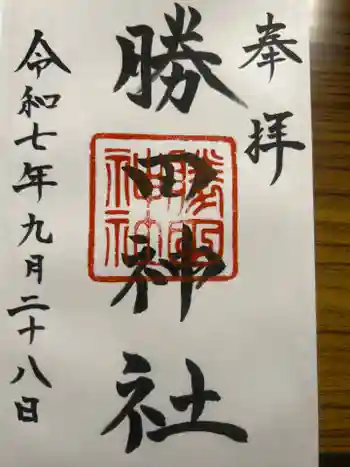 奉拝
勝田神社
勝田
神社
令和七年九月二十八日